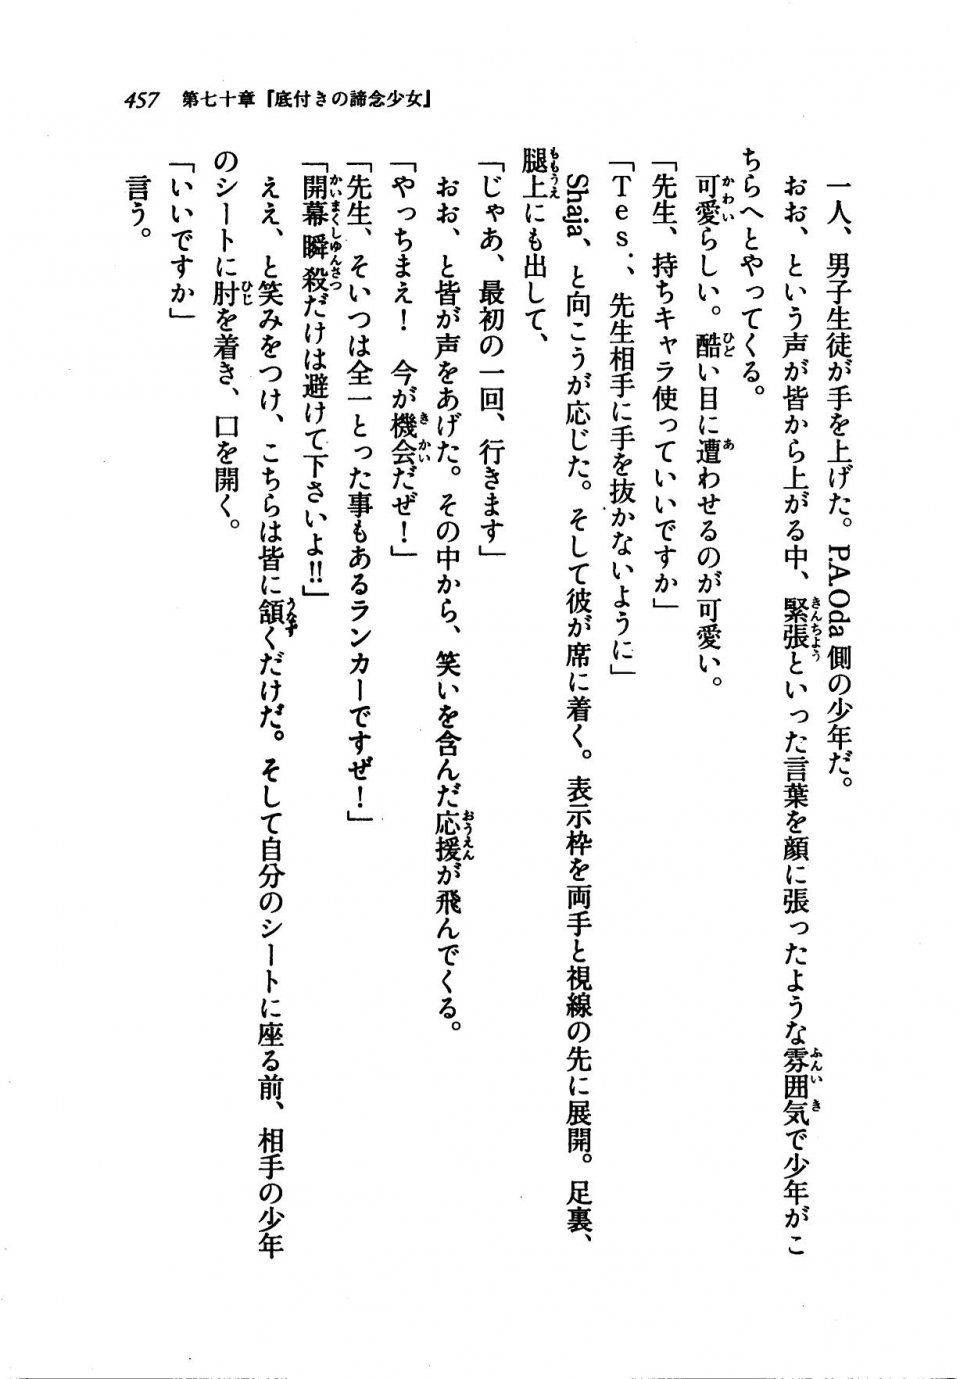 457 第七十章『底付きの諦念少女』
一人、男子生徒が手を上げた。P.A.Oda側の少年だ。
おお、という声が皆から上がる中、緊張といった言葉を顔に張ったような雰囲気で少年がこ
ちらへとやってくる。
可愛らしい。酷い目に遭わせるのが可愛い。
「先生、持ちキャラ使っていいですか」
「Tes.、先生相手に手を抜かないように」
Shaja、と向こうが応じた。そして彼が席に着く。表示枠を両手と視線の先に展開。足裏、
腿上にも出して、
「じゃあ、最初の一回、行きます」
おお、と皆が声をあげた。その中から、笑いを含んだ応援が飛んでくる。
「やっちまえ！　今が機会だぜ！」
「先生、そいつは全一とった事もあるランカーですぜ！」
「開幕瞬殺だけは避けて下さいよ!!」
ええ、と笑みをつけ、こちらは皆に頷くだけだ。そして自分のシートに座る前、相手の少年
のシートに肘を着き、口を開く。
「いいですか」
言う。